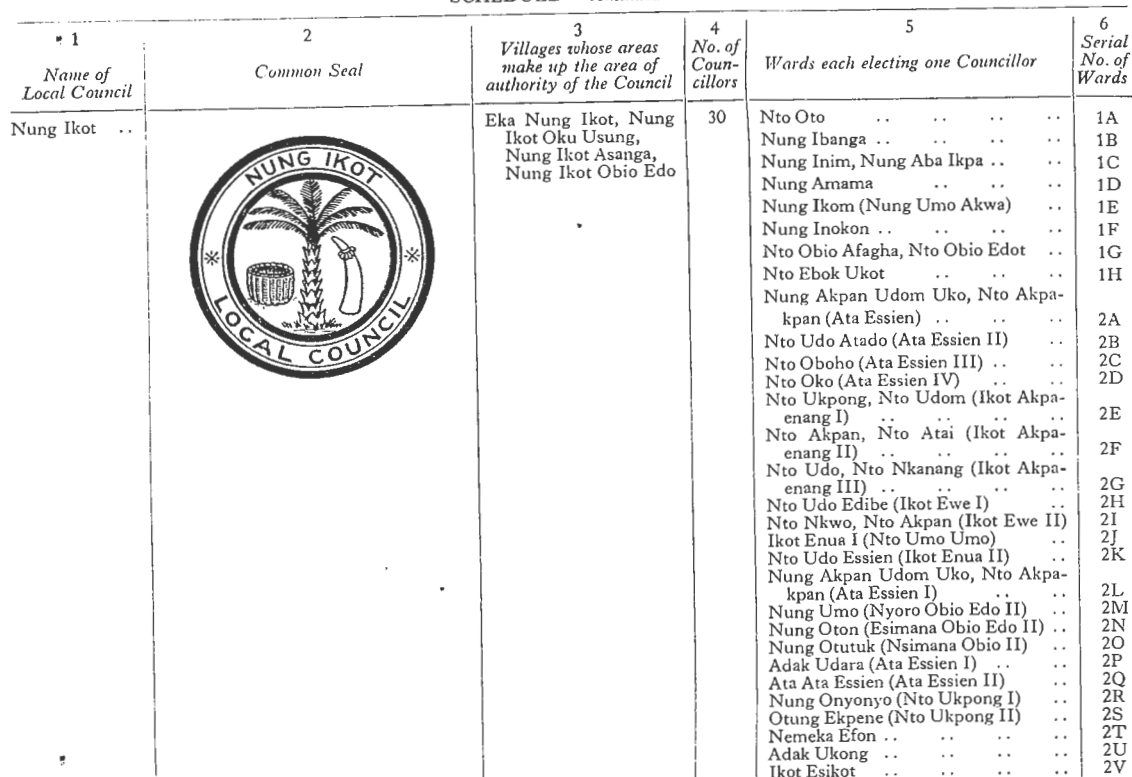 1
Name of
Local Council
2
Common Seal
3
Villages whose areas
make up the area of
authority of the Council
4
No. of
Coun-
cillors
5
Wards each electing one Councillor
6
Serial
No. of
Wards
Nung Ikot ..
NUNG IKOT
LOCAL COUNCIL
Eka Nung Ikot, Nung
Ikot Oku Usung,
Nung Ikot Asanga,
Nung Ikot Obio Edo
30
Nto Oto .. .. .. .. 1A
Nung Ibanga .. .. .. .. 1B
Nung Inim, Nung Aba Ikpa .. .. 1C
Nung Amama .. .. .. 1D
Nung Ikom (Nung Umo Akwa) .. 1E
Nung Inokon .. .. .. .. 1F
Nto Obio Afagha, Nto Obio Edot .. 1G
Nto Ebok Ukot .. .. .. 1H
Nung Akpan Udom Uko, Nto Akpa-
kpan (Ata Essien) .. .. .. 2A
Nto Udo Atado (Ata Essien II) .. 2B
Nto Oboho (Ata Essien III) .. .. 2C
Nto Oko (Ata Essien IV) .. .. 2D
Nto Ukpong, Nto Udom (Ikot Akpa-
enang I) .. .. .. .. 2E
Nto Akpan, Nto Atai (Ikot Akpa-
enang II) .. .. .. .. 2F
Nto Udo, Nto Nkanang (Ikot Akpa-
enang III) .. .. .. .. 2G
Nto Udo Edibe (Ikot Ewe I) .. 2H
Nto Nkwo, Nto Akpan (Ikot Ewe II) 2I
Ikot Enua I (Nto Umo Umo) .. 2J
Nto Udo Essien (Ikot Enua II) .. 2K
Nung Akpan Udom Uko, Nto Akpa-
kpan (Ata Essien I) .. .. 2L
Nung Umo (Nyoro Obio Edo II) .. 2M
Nung Oton (Esimana Obio Edo II) .. 2N
Nung Otutuk (Nsimana Obio II) .. 2O
Adak Udara (Ata Essien I) .. .. 2P
Ata Ata Essien (Ata Essien II) .. 2Q
Nung Onyonyo (Nto Ukpong I) .. 2R
Otung Ekpene (Nto Ukpong II) .. 2S
Nemeka Efon .. .. .. .. 2T
Adak Ukong .. .. .. .. 2U
Ikot Esikot .. .. .. .. 2V